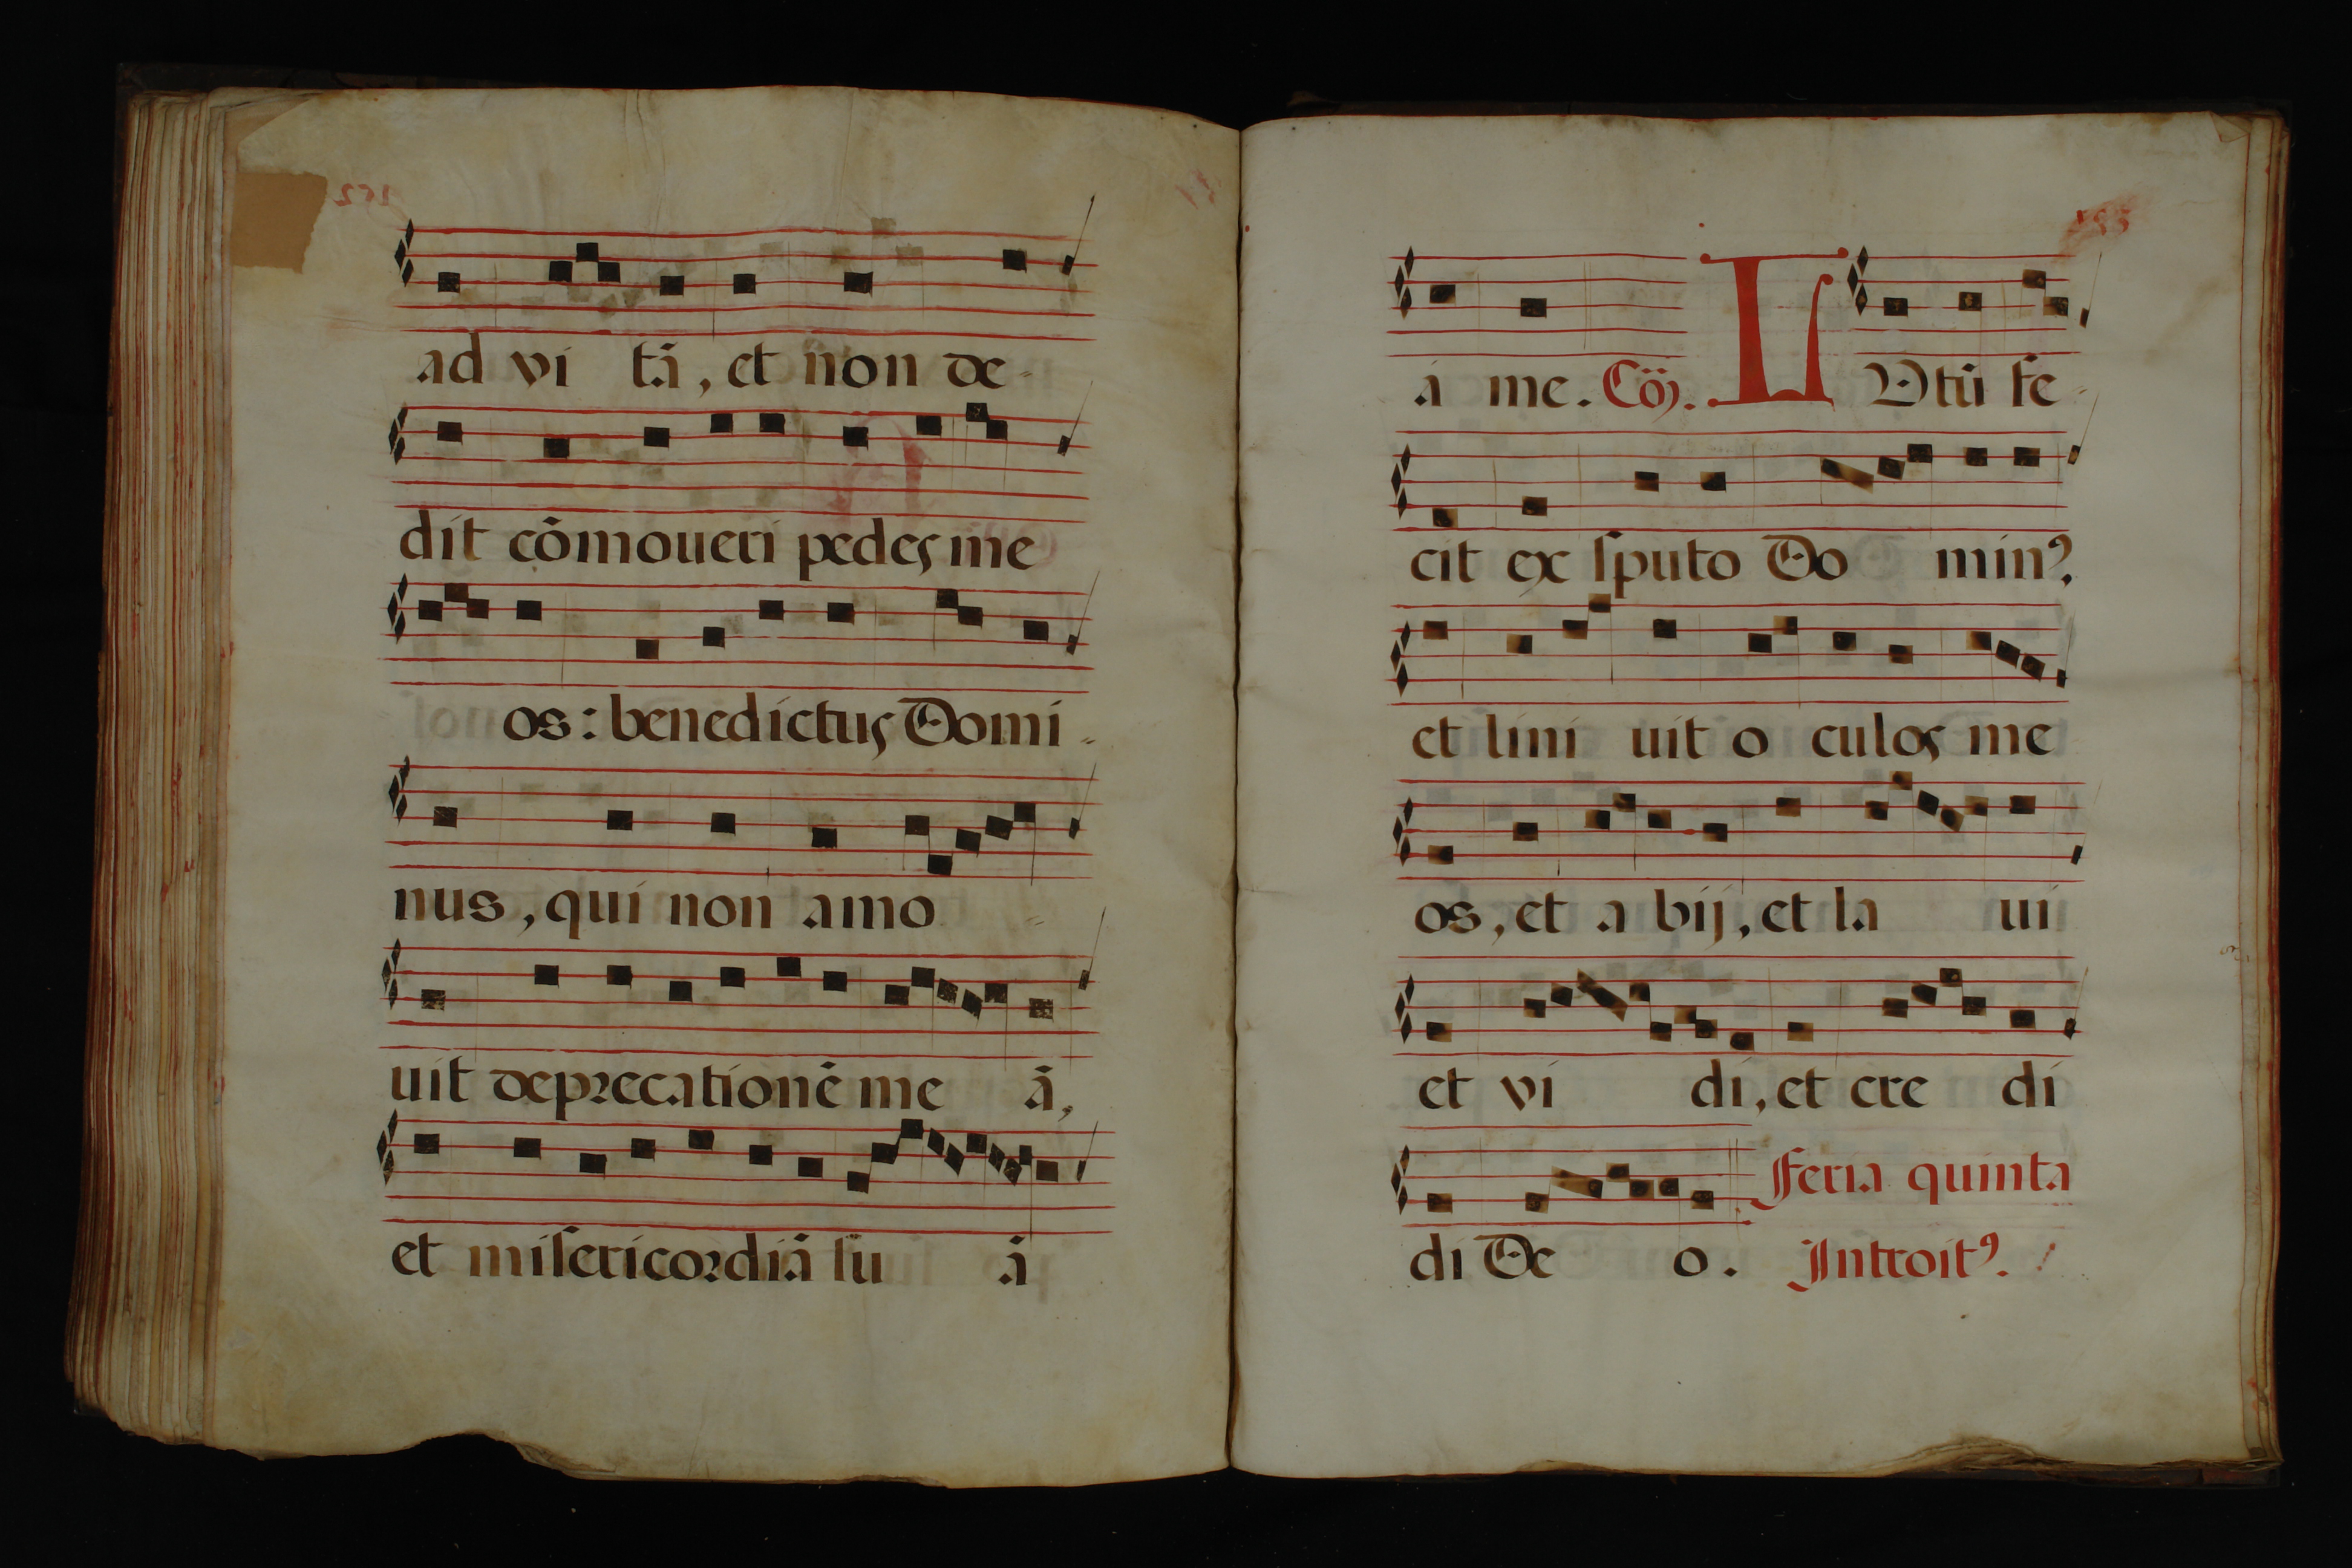 ad vi tã, et non de-
dit cõmoueri pedes me
os: benedictus Domi-
nus, qui non amo-
uit deprecationẽ me ã,
et misericordiã su ã
155
á me. Cõ. L Vtũ fe-
cit ex sputo Do minꝰ,
et lini uit o culos me
os, et a bij, et la ui
et vi di, et cre di
di De o. Feria quinta
Introitꝰ.